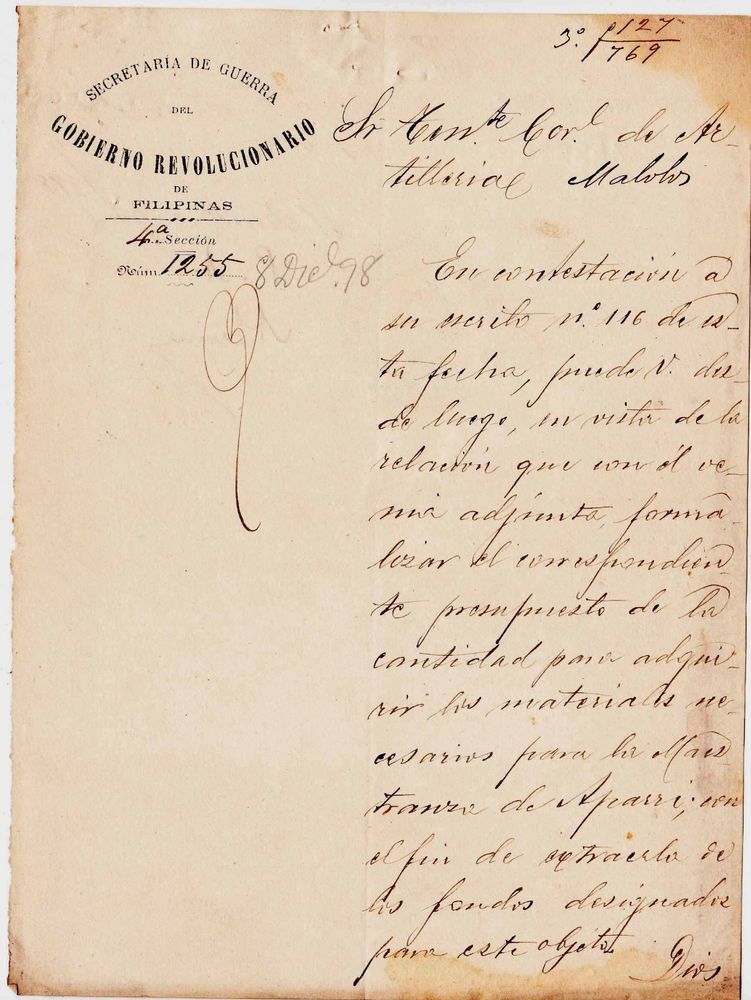 3º. P 127
769
SECRETARÍA DE GUERRA
DEL
GOBIERNO REVOLUCIONARIO
DE
FILIPINAS
4ª Sección
Núm. 1255
8 Dice. 98
Sr Tente. Corl. de Ar-
tilleria Malolos
En contestación á
su escrito nº. 116 de es-
ta fecha, puede V. des-
de luego, en vista de la
relación que con él ve-
nia adjunta, forma-
lizar el correspondien-
te presupuesto de la
cantidad para adqui-
rir los materiales ne-
cesarios para la Maes
tranza de Aparri; con
el fin de extraerla de
los fondos designados
para este objeto.
Dios